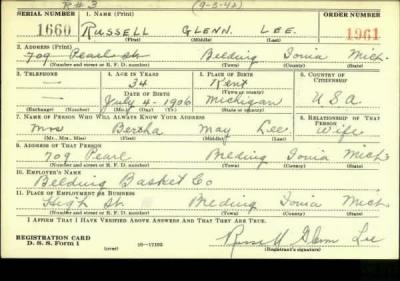 R#3 (9-3-42)
SERIAL NUMBER 1. NAME (Print) ORDER NUMBER
1660 RUSSELL GLENN. LEE. 1961
(First) (Middle) (Last)
2. ADDRESS (Print)
709 Pearl St Belding Ionia Mich.
(Number and street or R. F. D. number) (Town) (County) (State)
3. TELEPHONE 4. AGE IN YEARS 5. PLACE OF BIRTH 6. COUNTRY OF CITIZENSHIP
— 34 Kent
DATE OF BIRTH (Town or county)
— July 4 - 1906 Michigan USA
(Exchange) (Number) (Mo.) (Day) (Yr.) (State or country)
7. NAME OF PERSON WHO WILL ALWAYS KNOW YOUR ADDRESS 8. RELATIONSHIP OF THAT PERSON
Mrs Bertha May Lee Wife
(Mr., Mrs., Miss) (First) (Middle) (Last)
9. ADDRESS OF THAT PERSON
709 Pearl Belding Ionia Mich
(Number and street or R. F. D. number) (Town) (County) (State)
10. EMPLOYER'S NAME
Belding Basket Co
11. PLACE OF EMPLOYMENT OR BUSINESS
High St Belding Ionia Mich
(Number and street or R. F. D. number) (Town) (County) (State)
I AFFIRM THAT I HAVE VERIFIED ABOVE ANSWERS AND THAT THEY ARE TRUE.
REGISTRATION CARD
D. S. S. Form 1 (over) 16—17105
Russell Glenn Lee
(Registrant's signature)